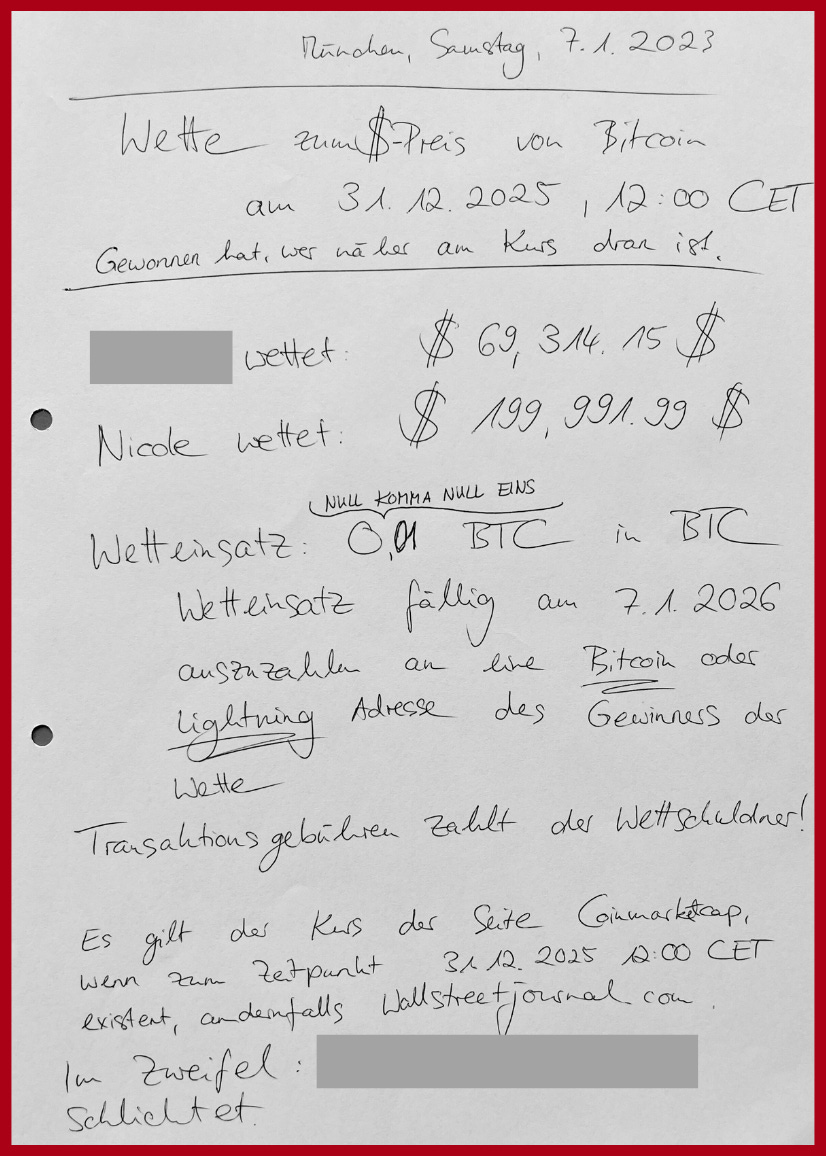 München, Samstag, 7.1.2023
Wette zum $-Preis von Bitcoin
am 31.12.2025, 12:00 CET
Gewonnen hat, wer näher am Kurs dran ist.
wettet: $ 69,314.15 $
Nicole wettet: $ 199,991.99 $
NULL KOMMA NULL EINS
Wetteinsatz: 0,01 BTC in BTC
Wetteinsatz fällig am 7.1.2026
auszuzahlen an eine Bitcoin oder
Lightning Adresse des Gewinners der
Wette
Transaktionsgebühren zahlt der Wettschuldner!
Es gilt der Kurs der Seite Coinmarketcap,
wenn zum Zeitpunkt 31.12.2025 12:00 CET
existent, andernfalls Wallstreetjournal.com.
Im Zweifel:
schlichtet.